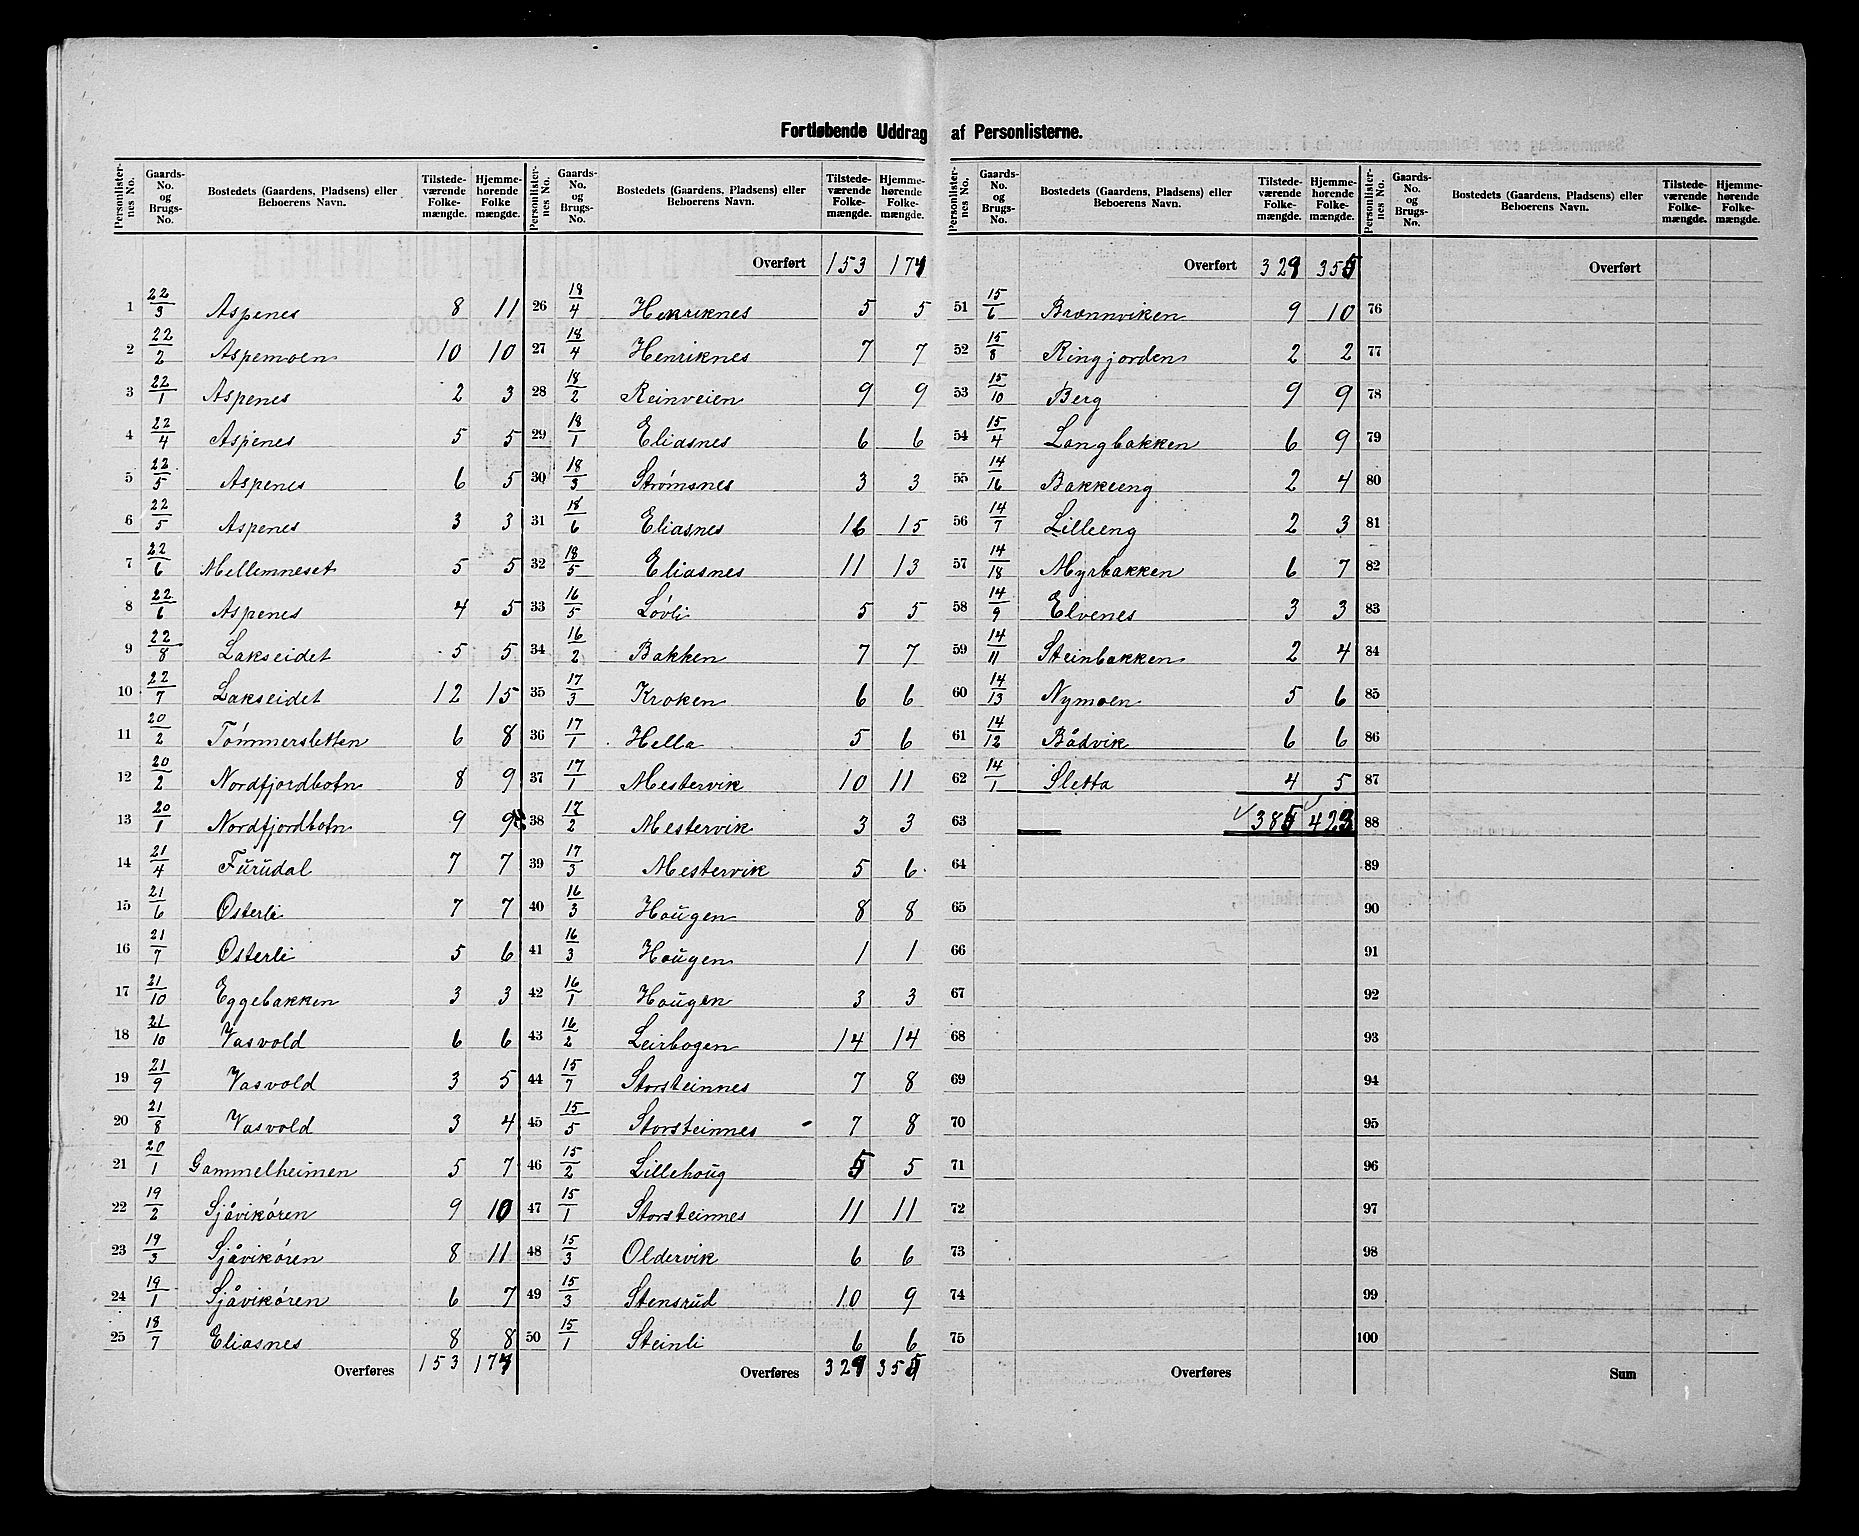 Fortløbende Uddrag af Personlisterne.
Personlister- nes No. Gaards- No. og Brugs- No. Bostedets (Gaardens, Pladsens) eller Beboerens Navn. Tilstede- værende Folke- mængde. Hjemme- hørende Folke mængde.
1 22/3 Aspenes 8 11
2 22/2 Aspemoen 10 10
3 22/1 Aspenes 2 3
4 22/4 Aspenes 5 5
5 22/5 Aspenes 6 5
6 22/5 Aspenes 3 3
7 22/6 Mellemneset 5 5
8 22/6 Aspenes 4 5
9 22/8 Lakseidet 5 5
10 22/7 Lakseidet 12 15
11 20/2 Tømmersletten 6 8
12 20/2 Nordfjordbotn 8 9
13 20/1 Nordfjordbotn 9 9
14 21/4 Furudal 7 7
15 21/6 Østerli 7 7
16 21/7 Østerli 5 6
17 21/10 Eggebakken 3 3
18 21/10 Vasvold 6 6
19 21/9 Vasvold 3 5
20 21/8 Vasvold 3 4
21 20/1 Gammelheimen 5 7
22 19/2 Sjåvikøren 9 10
23 19/3 Sjåvikøren 8 11
24 19/1 Sjåvikøren 6 7
25 18/7 Eliasnes 8 8
Overføres 153
Personlister- nes No. Gaards- No. og Brugs- No. Bostedets (Gaardens, Pladsens) eller Beboerens Navn. Tilstede- værende Folke- mængde. Hjemme- hørende Folke- mængde.
Overført 153
26 18/4 Henriknes 5 5
27 18/4 Henriknes 7 7
28 18/2 Reinveien 9 9
29 18/1 Eliasnes 6 6
30 18/3 Strømsnes 3 3
31 18/6 Eliasnes 16 15
32 18/5 Eliasnes 11 13
33 16/5 Løvli 5 5
34 16/2 Bakken 7 7
35 17/3 Kroken 6 6
36 17/1 Hella 5 6
37 17/1 Mestervik 10 11
38 17/2 Mestervik 3 3
39 17/3 Mestervik 5 6
40 16/3 Hougen 8 8
41 16/3 Hougen 1 1
42 16/1 Hougen 3 3
43 16/2 Leirbogen 14 14
44 15/7 Storsteinnes 7 8
45 15/5 Storsteinnes 7 8
46 15/2 Lillehoug 5 5
47 15/1 Storsteinnes 11 11
48 15/3 Oldervik 6 6
49 15/3 Stensrud 10 9
50 15/1 Steinli 6 6
Overføres 329 355
Personlister- nes No. Gaards- No. og Brugs- No. Bostedets (Gaardens, Pladsens) eller Beboerens Navn. Tilstede- værende Folke- mængde. Hjemme- hørende Folke- mængde.
Overført 329 355
51 15/6 Brønnviken 9 10
52 15/8 Ringjorden 2 2
53 15/10 Berg 9 9
54 15/4 Langbakken 6 9
55 14/16 Bakkeeng 2 4
56 14/7 Lilleeng 2 3
57 14/18 Myrbakken 6 7
58 14/9 Elvenes 3 3
59 14/11 Steinbakken 2 4
60 14/13 Nymoen 5 6
61 14/12 Bådvik 6 6
62 14/1 Sletta 4 5
63 385 423
64
65
66
67
68
69
70
71
72
73
74
75
Overføres
Personlister- nes No. Gaards- No. og Brugs- No. Bostedets (Gaardens, Pladsens) eller Beboerens Navn. Tilstede- værende Folke- mængde. Hjemme- hørende Folke- mængde.
Overført
76
77
78
79
80
81
82
83
84
85
86
87
88
89
90
91
92
93
94
95
96
97
98
99
100
Sum